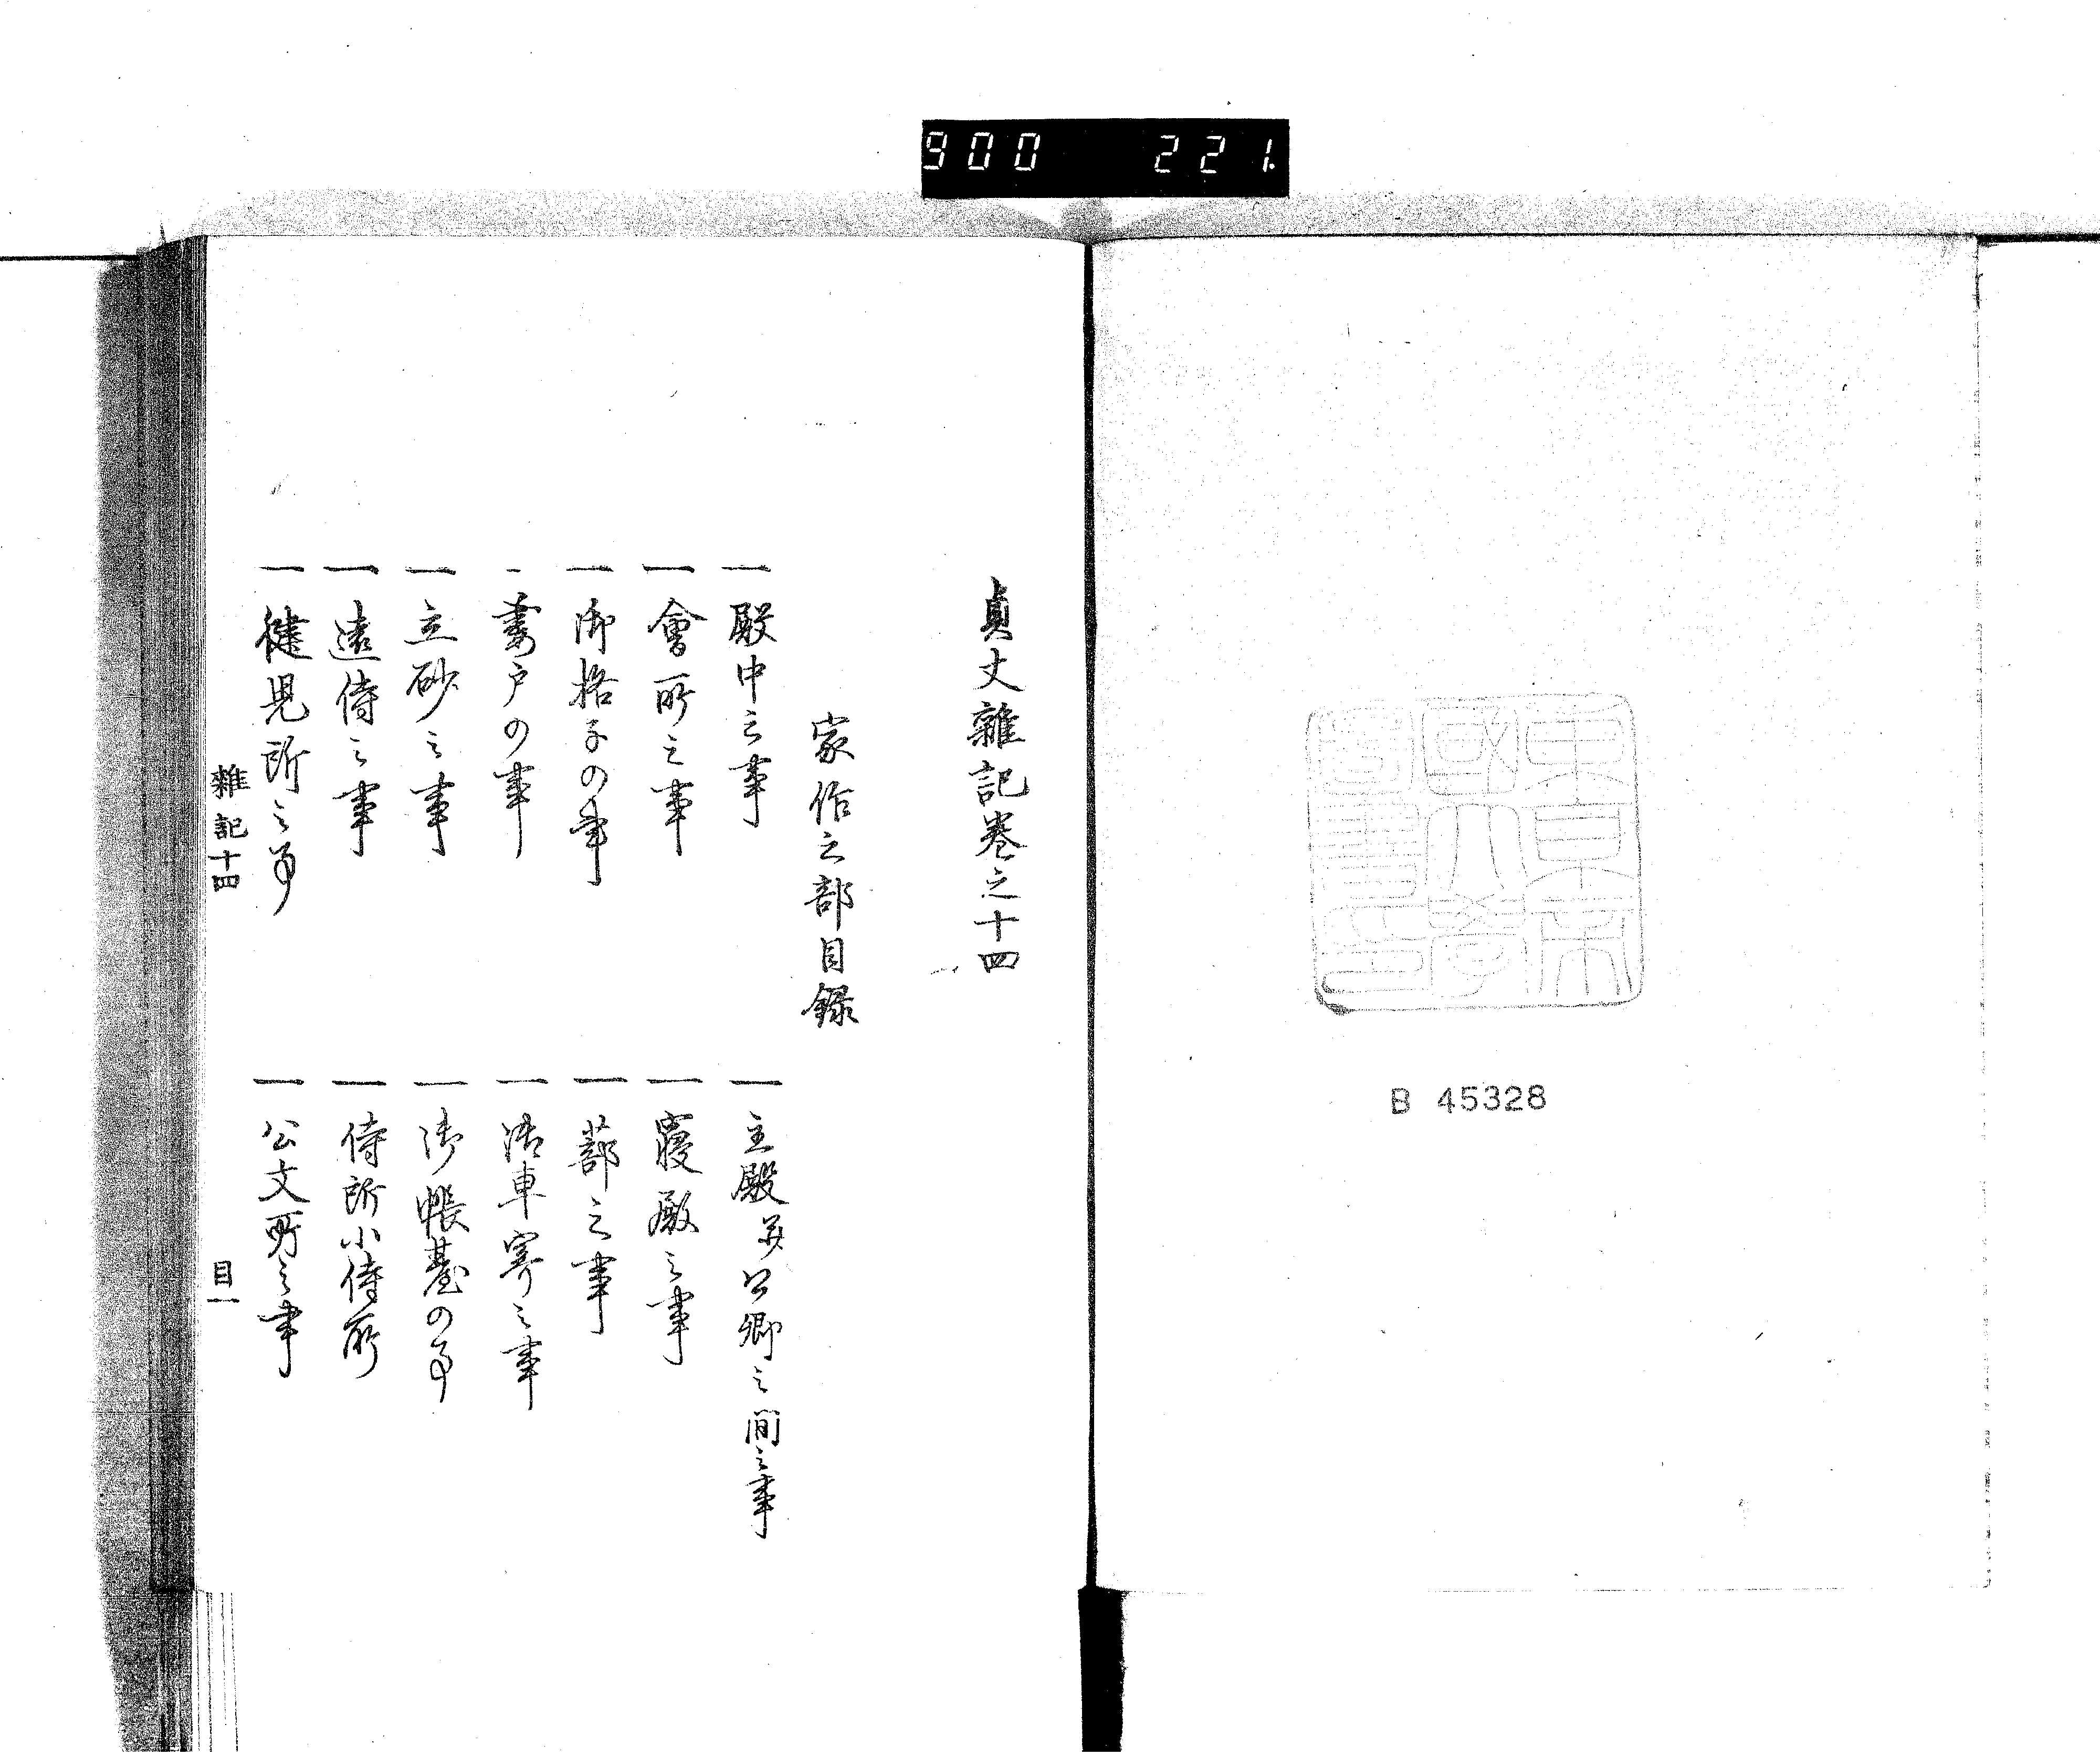 900 221.
東京帝
國大學
圖書印
B 45328
貞丈雜記卷之十四
家作之部目録
一 殿中之事
一 主殿并公卿之間之事
一 會所之事
一 寝殿之事
一 御格子の事
一 蔀之事
一 妻戸の事
一 御車寄之事
一 立砂之事
一 御帳臺の事
一 遠侍之事
一 侍所小侍所
一 健児所之事
一 公文所之事
雜記十四
目一